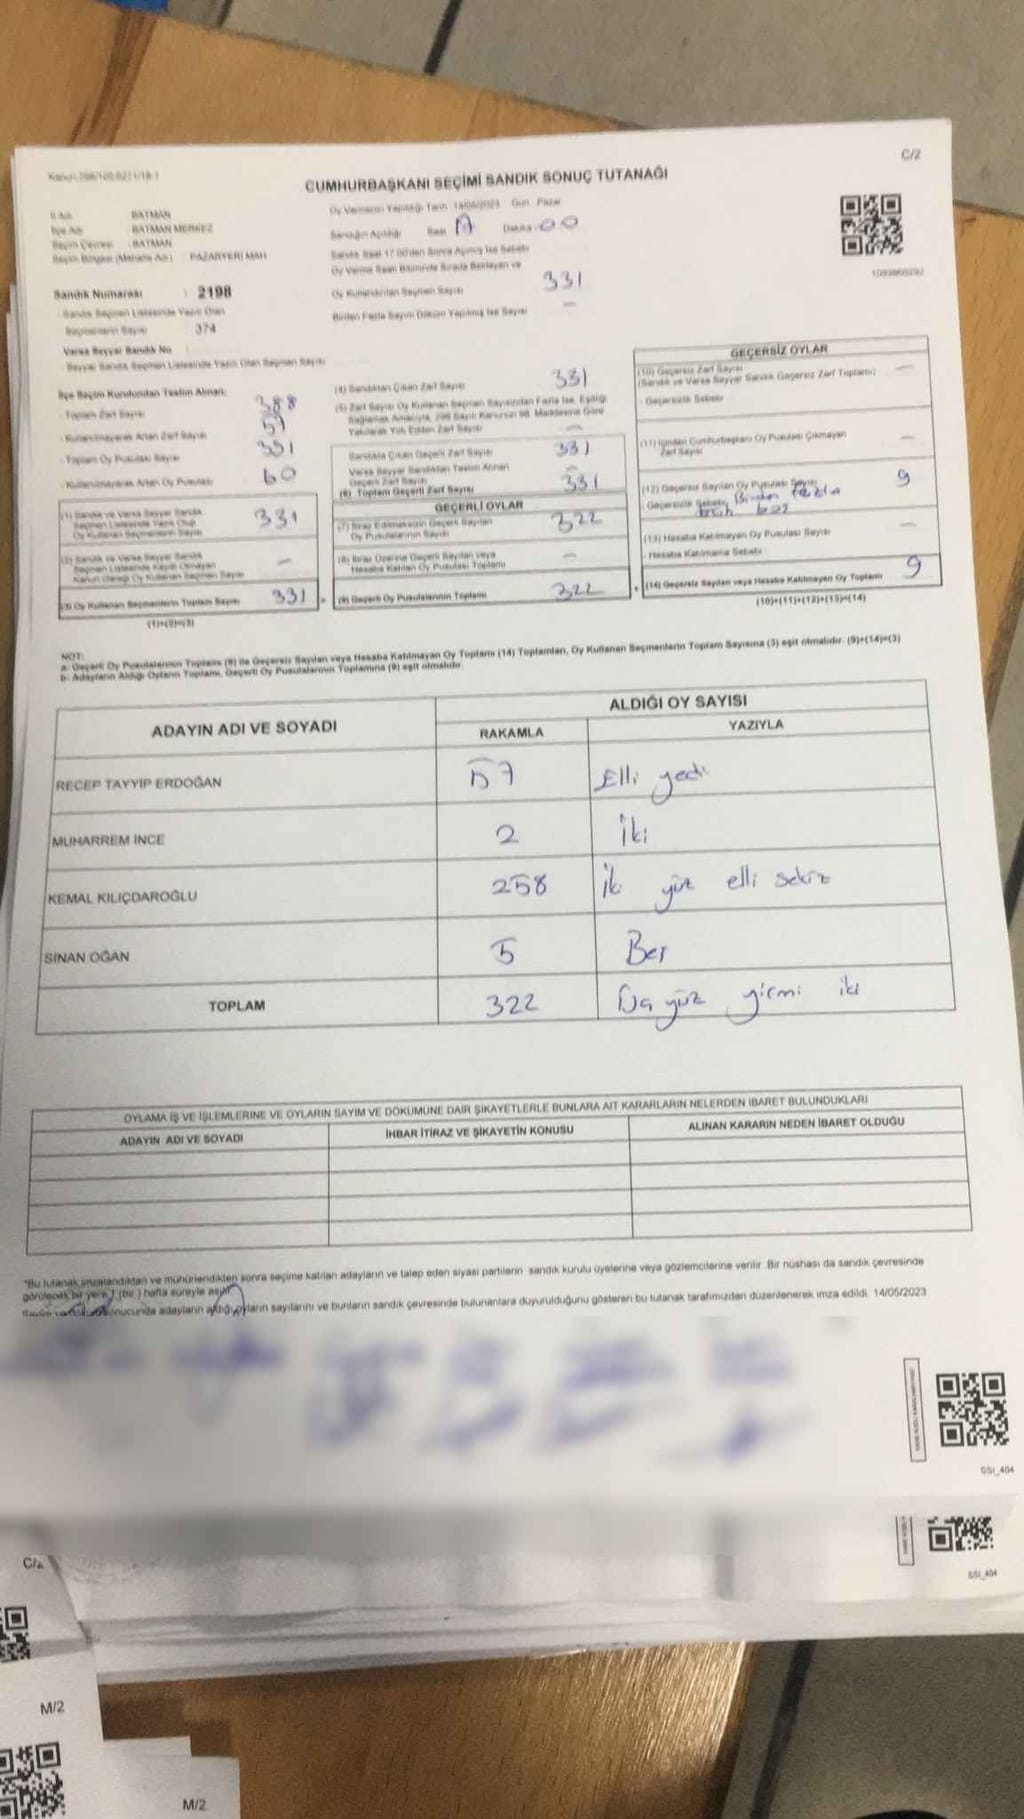 C/2
CUMHURBAŞKANI SEÇİMİ SANDIK SONUÇ TUTANAĞI
İl Adı BATMAN
İlçe Adı BATMAN MERKEZ
Seçim Çevresi : BATMAN
Seçim Bölgesi (Mahalle Adı) PAZARYERİ MAH.
Sandık Numarası : 2198
Sandık Seçmen Listesinde Yazılı Olan
Seçmenlerin Sayısı 374
Varsa Seyyar Sandık No
Seyyar Sandık Seçmen Listesinde Yazılı Olan Seçmen Sayısı
Oy Vermenin Yapıldığı Tarih 14/05/2023 Gün : Pazar
Sandığın Açıldığı Saat Dakika 00
Sandık Saat 17.00'den Sonra Açılmış İse Sebebi
Oy Verme Saati Bitiminde Sırada Bekleyen ve
Oy Kullandırılan Seçmen Sayısı 331
Birden Fazla Sayım Döküm Yapılmış İse Sayısı —
1093860292
İlçe Seçim Kurulundan Teslim Alınan:
- Toplam Zarf Sayısı 388
- Kullanılmayarak Artan Zarf Sayısı 57
- Toplam Oy Pusulası Sayısı
- Kullanılmayarak Artan Oy Pusulası 60
(1) Sandık ve Varsa Seyyar Sandık
Seçmen Listesinde Yazılı Olup
Oy Kullanan Seçmenlerin Sayısı 331
(2) Sandık ve Varsa Seyyar Sandık
Seçmen Listesinde Kayıtlı Olmayan
Kanun Gereği Oy Kullanan Seçmen Sayısı —
(3) Oy Kullanan Seçmenlerin Toplam Sayısı 331
(1)+(2)=(3)
(4) Sandıktan Çıkan Zarf Sayısı 331
(5) Zarf Sayısı Oy Kullanan Seçmen Sayısından Fazla İse, Eşitliği
Sağlamak Amacıyla, 298 Sayılı Kanunun 98. Maddesine Göre
Yakılarak Yok Edilen Zarf Sayısı —
Sandıkta Çıkan Geçerli Zarf Sayısı 331
Varsa Seyyar Sandıktan Teslim Alınan
Geçerli Zarf Sayısı —
(6) Toplam Geçerli Zarf Sayısı 331
GEÇERLİ OYLAR
(7) İtiraz Edilmeksizin Geçerli Sayılan
Oy Pusulalarının Sayısı 322
(8) İtiraz Üzerine Geçerli Sayılan veya
Hesaba Katılan Oy Pusulası Toplamı —
(9) Geçerli Oy Pusulalarının Toplamı 322
GEÇERSİZ OYLAR
(10) Geçersiz Zarf Sayısı
(Sandık ve Varsa Seyyar Sandık Geçersiz Zarf Toplamı) —
- Geçersizlik Sebebi
(11) İçinden Cumhurbaşkanı Oy Pusulası Çıkmayan
Zarf Sayısı —
(12) Geçersiz Sayılan Oy Pusulası Sayısı 9
- Geçersizlik Sebebi Birden fazla
(13) Hesaba Katılmayan Oy Pusulası Sayısı —
- Hesaba Katılmama Sebebi
(14) Geçersiz Sayılan veya Hesaba Katılmayan Oy Toplamı 9
(10)+(11)+(12)+(13)=(14)
NOT:
a- Geçerli Oy Pusulalarının Toplamı (9) ile Geçersiz Sayılan veya Hesaba Katılmayan Oy Toplamı (14) Toplamları, Oy Kullanan Seçmenlerin Toplam Sayısına (3) eşit olmalıdır. (9)+(14)=(3)
b- Adayların Aldığı Oyların Toplamı, Geçerli Oy Pusulalarının Toplamına (9) eşit olmalıdır.
ADAYIN ADI VE SOYADI
ALDIĞI OY SAYISI
RAKAMLA YAZIYLA
RECEP TAYYİP ERDOĞAN 57 Elli yedi
MUHARREM İNCE 2 İki
KEMAL KILIÇDAROĞLU 258 İki yüz elli sekiz
SİNAN OĞAN 5 Beş
TOPLAM 322 Üç yüz yirmi iki
OYLAMA İŞ VE İŞLEMLERİNE VE OYLARIN SAYIM VE DÖKÜMÜNE DAİR ŞİKAYETLERLE BUNLARA AİT KARARLARIN NELERDEN İBARET BULUNDUKLARI
ADAYIN ADI VE SOYADI İHBAR İTİRAZ VE ŞİKAYETİN KONUSU ALINAN KARARIN NEDEN İBARET OLDUĞU
*Bu tutanak imzalandıktan ve mühürlendikten sonra seçime katılan adayların ve talep eden siyasi partilerin sandık kurulu üyelerine veya gözlemcilerine verilir. Bir nüshası da sandık çevresinde
görülecek bir yere 1 (bir) hafta süreyle asılır.
sonucunda adayların aldığı oyların sayılarını ve bunların sandık çevresinde bulunanlara duyurulduğunu gösteren bu tutanak tarafımızdan düzenlenerek imza edildi. 14/05/2023
SSI_404
SSI_404
C/2
M/2
M/2